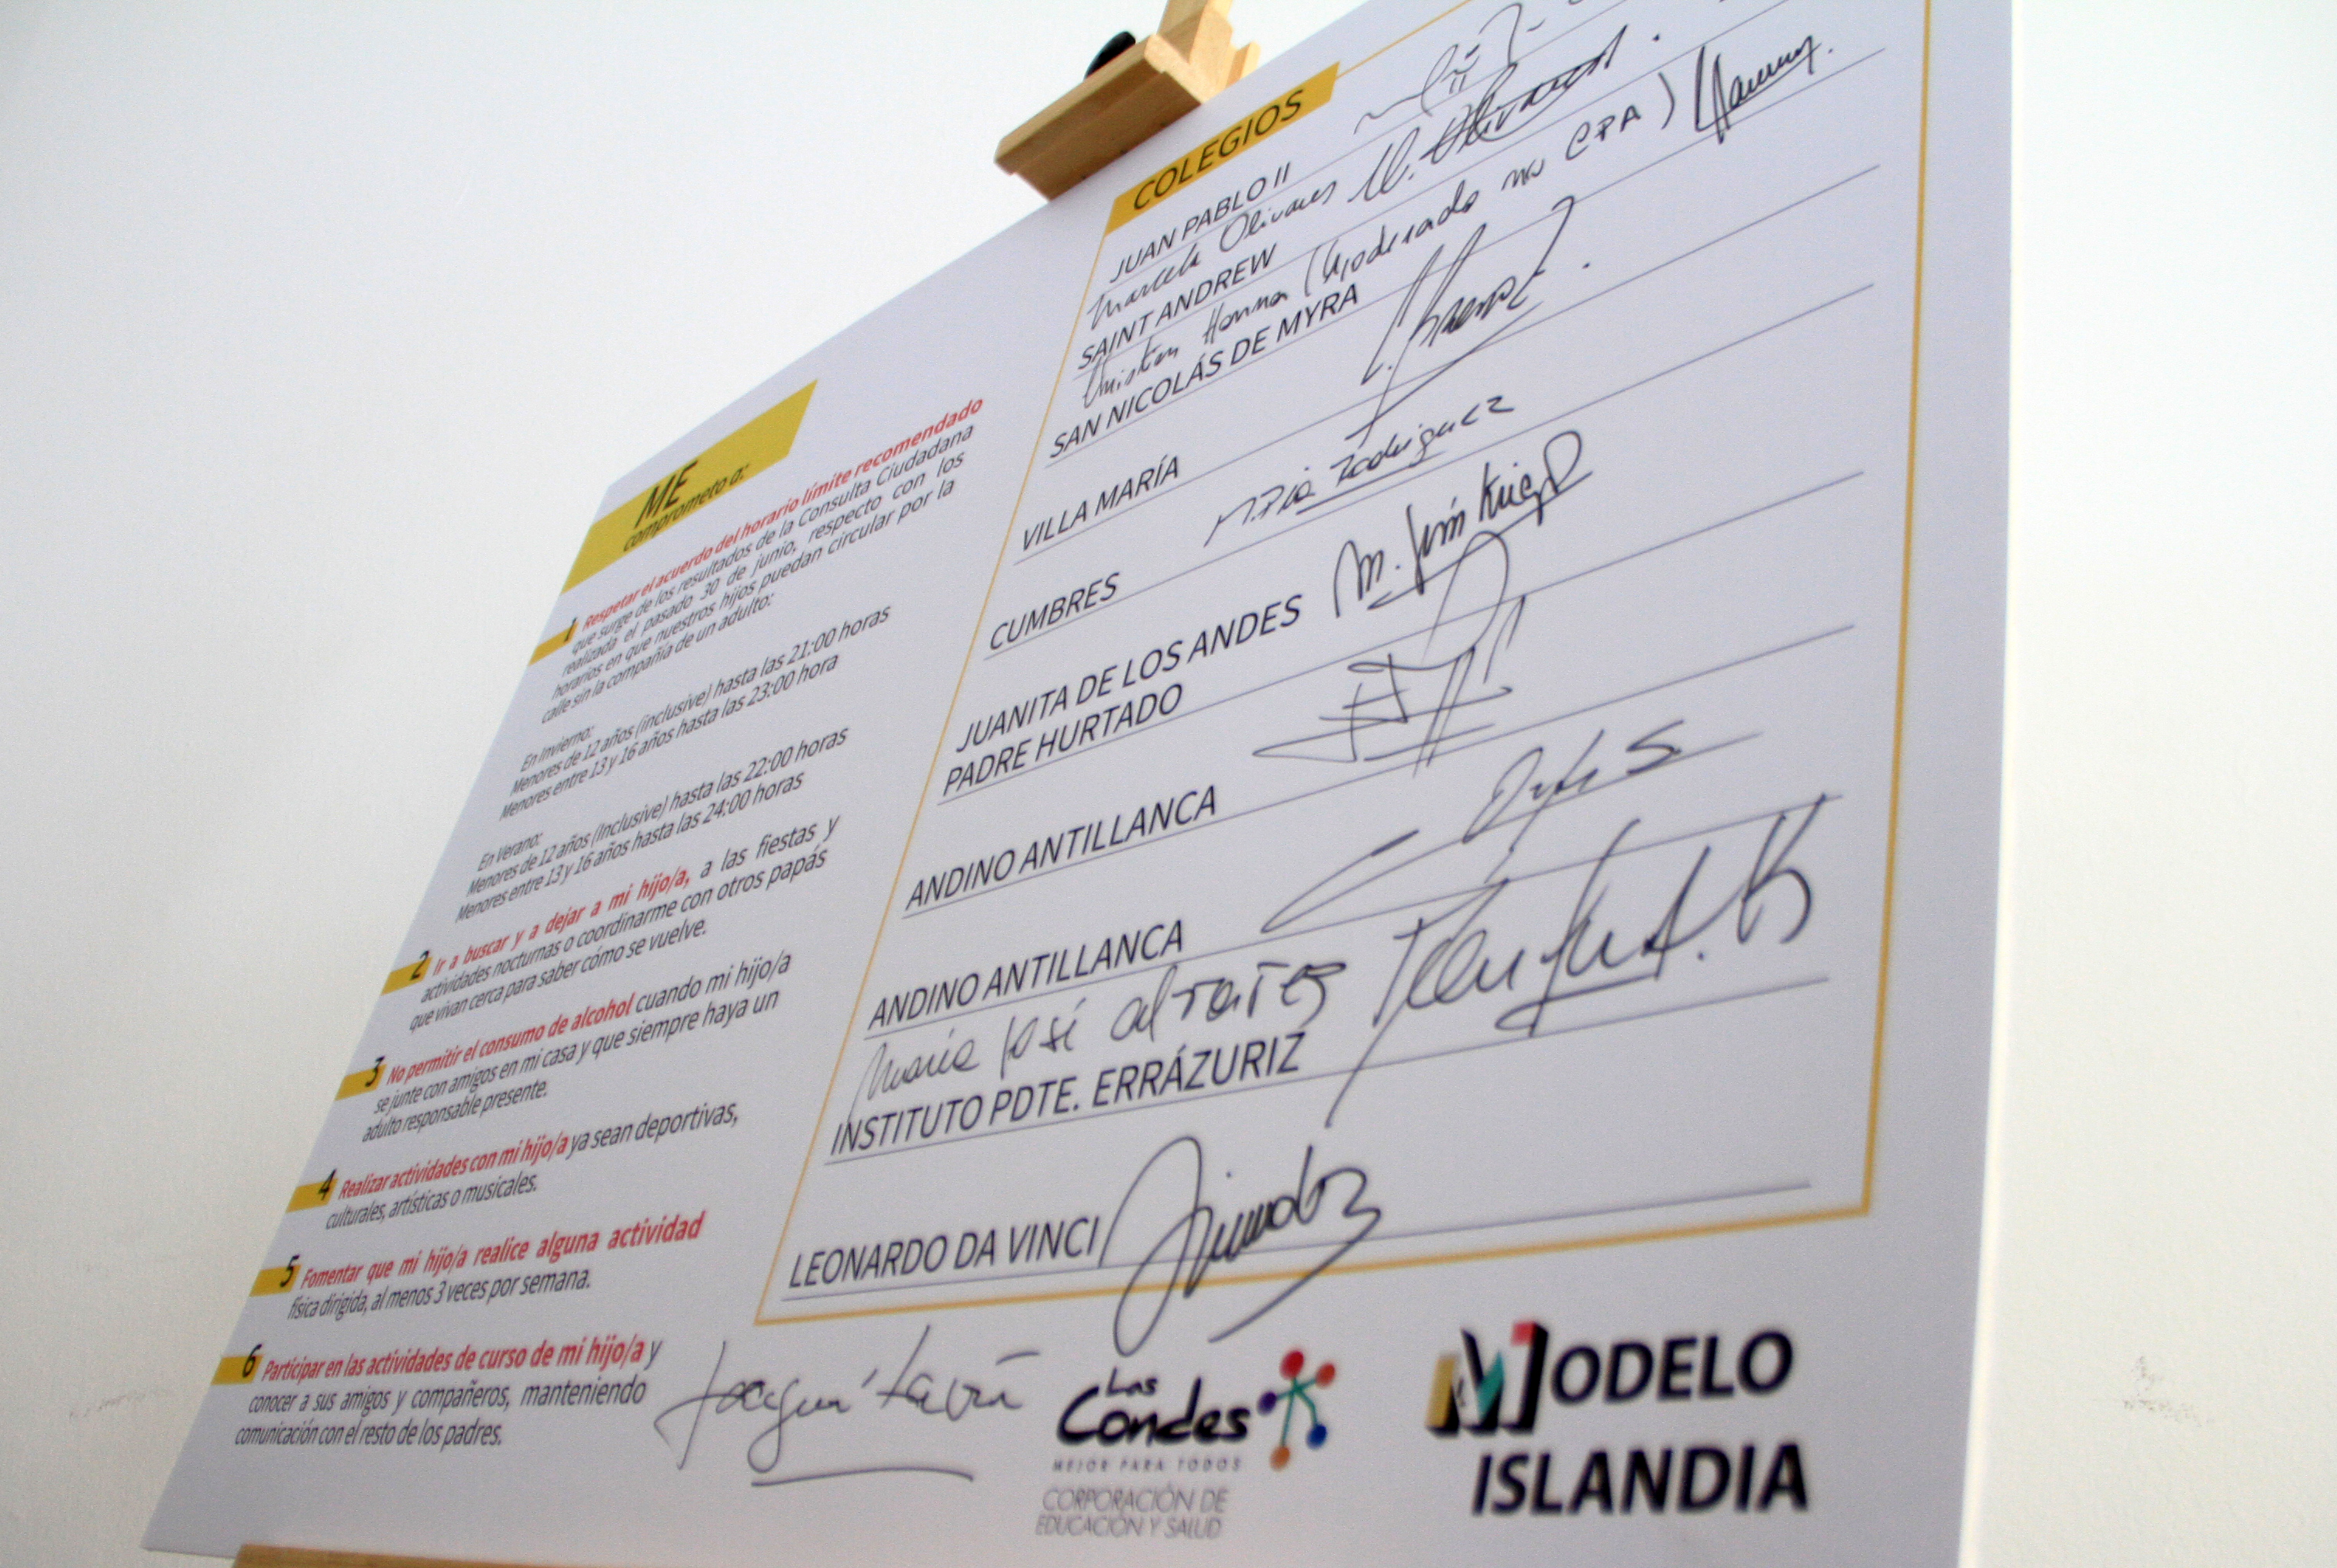 ME
comprometo a:
1 Respetar el acuerdo del horario límite recomendado
que surge de los resultados de la Consulta Ciudadana
realizada el pasado 30 de junio, respecto con los
horarios en que nuestros hijos puedan circular por la
calle sin la compañía de un adulto:
En Invierno:
Menores de 12 años (inclusive) hasta las 21:00 horas
Menores entre 13 y 16 años hasta las 23:00 hora
En Verano:
Menores de 12 años (Inclusive) hasta las 22:00 horas
Menores entre 13 y 16 años hasta las 24:00 horas
2 Ir a buscar y a dejar a mi hijo/a, a las fiestas y
actividades nocturnas o coordinarme con otros papás
que vivan cerca para saber cómo se vuelve.
3 No permitir el consumo de alcohol cuando mi hijo/a
se junte con amigos en mi casa y que siempre haya un
adulto responsable presente.
4 Realizar actividades con mi hijo/a ya sean deportivas,
culturales, artísticas o musicales.
5 Fomentar que mi hijo/a realice alguna actividad
física dirigida, al menos 3 veces por semana.
6 Participar en las actividades de curso de mi hijo/a y
conocer a sus amigos y compañeros, manteniendo
comunicación con el resto de los padres.
COLEGIOS
JUAN PABLO II
Marcela Olivares M. Olivares
SAINT ANDREW
Christian Hanna (Apoderado no CPA)
SAN NICOLÁS DE MYRA
VILLA MARÍA
M. Pía Rodriguez
CUMBRES
JUANITA DE LOS ANDES
PADRE HURTADO
ANDINO ANTILLANCA
ANDINO ANTILLANCA
María José
INSTITUTO PDTE. ERRÁZURIZ
LEONARDO DA VINCI
Joaquín Lavín
Las
Condes
MEJOR PARA TODOS
CORPORACIÓN DE
EDUCACIÓN Y SALUD
MODELO
ISLANDIA